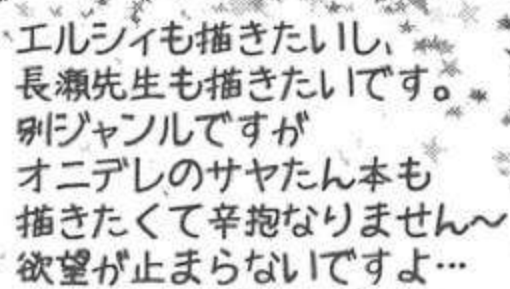 エルシィも描きたいし、
長瀬先生も描きたいです。
別ジャンルですが
オニデレのサヤたん本も
描きたくて辛抱なりません～
欲望が止まらないですよ…